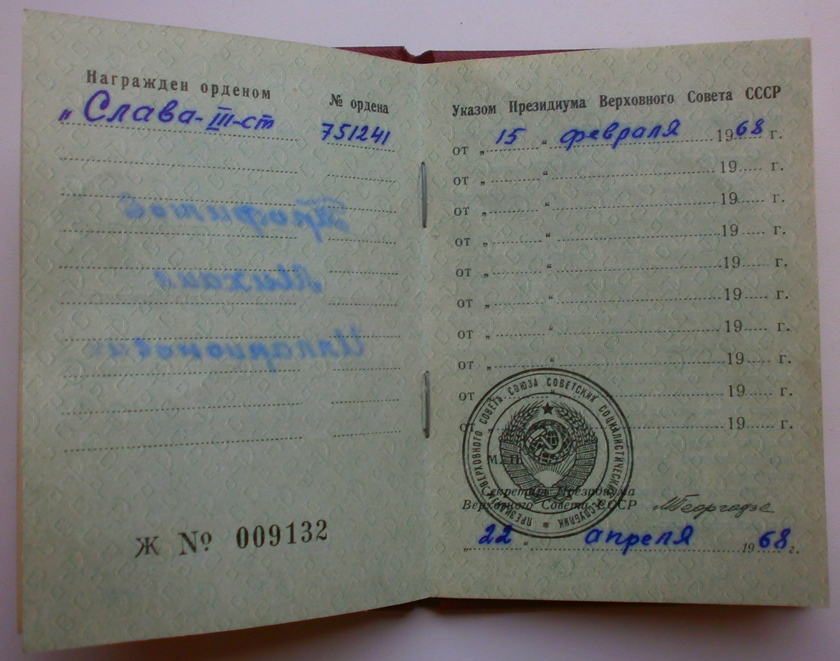 Награжден орденом
№ ордена
"Слава-III-ст
751241
Ж № 009132
Указом Президиума Верховного Совета СССР
от „ 15 " февраля 1968 г.
от „ " 19 г.
от „ " 19 г.
от „ " 19 г.
от „ " 19 г.
от „ " 19 г.
от „ " 19 г.
от „ " 19 г.
от „ " 19 г.
от „ " 19 г.
М. П.
ПРЕЗИДИУМ ВЕРХОВНОГО СОВЕТА СОЮЗА СОВЕТСКИХ СОЦИАЛИСТИЧЕСКИХ РЕСПУБЛИК
Секретарь Президиума
Верховного Совета СССР
МГеоргадзе
„ 22 " апреля 1968 г.